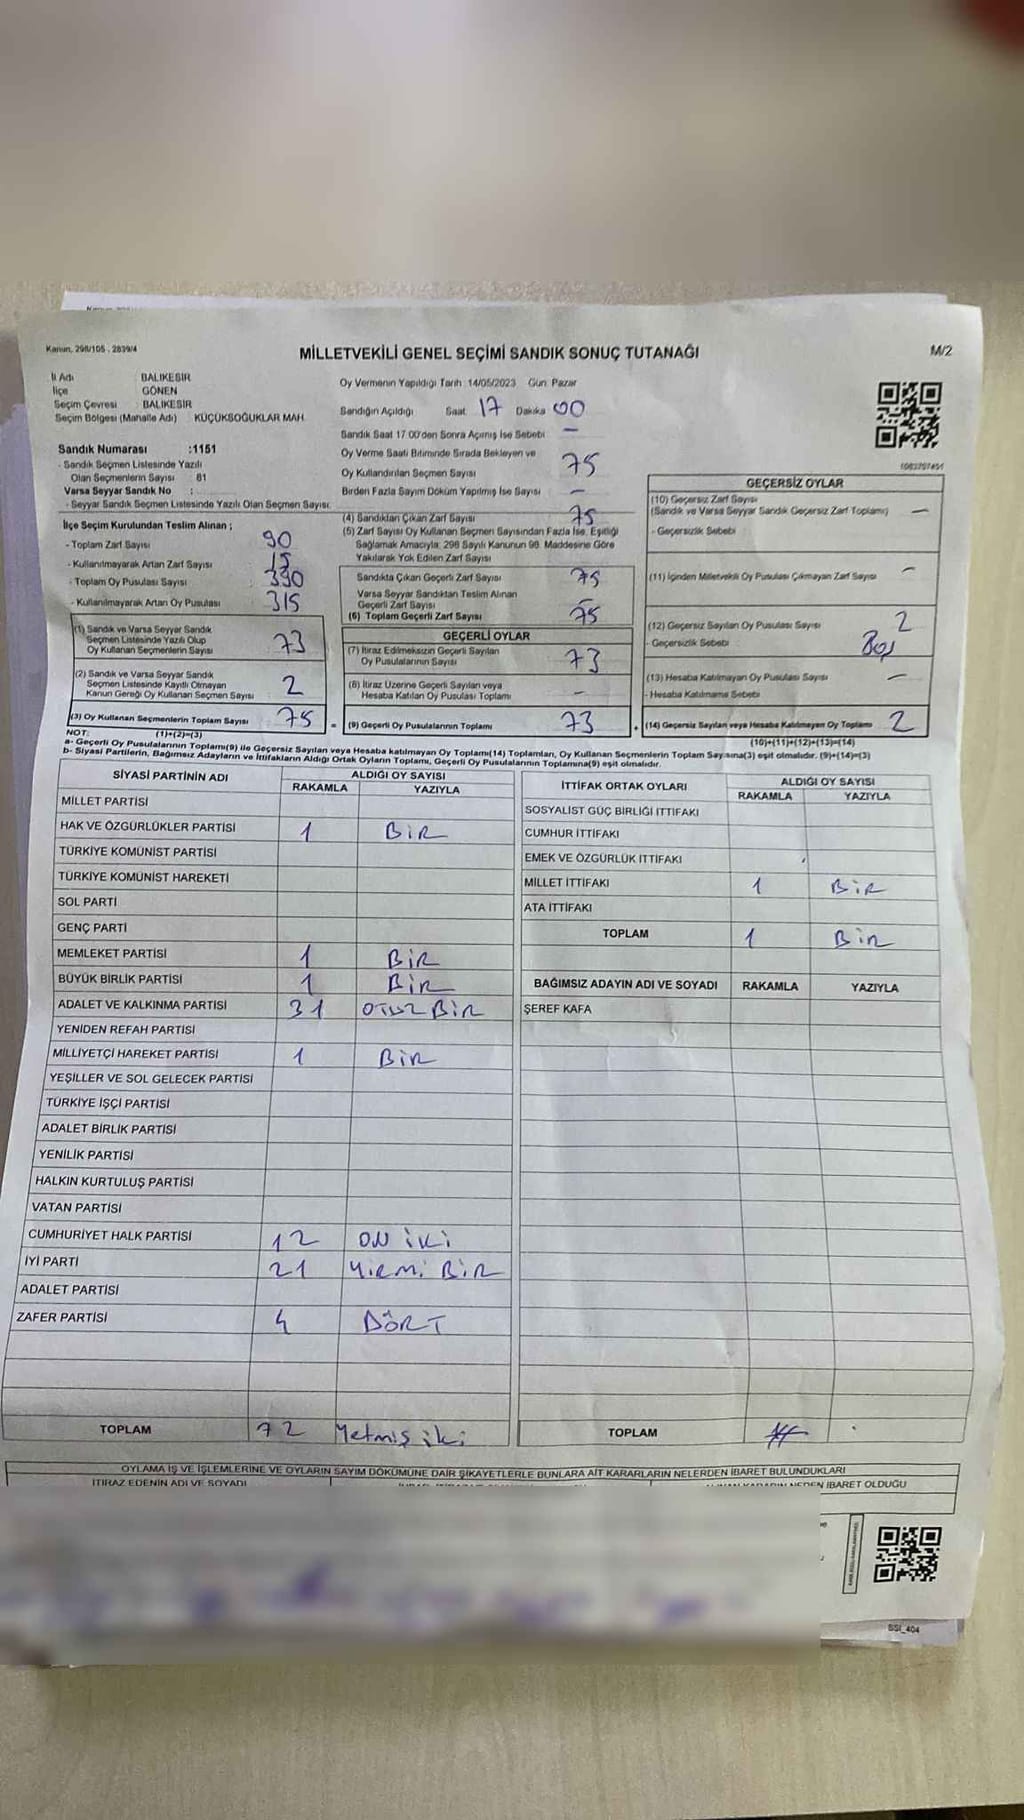 Kanun, 298/105 , 2839/4
MİLLETVEKİLİ GENEL SEÇİMİ SANDIK SONUÇ TUTANAĞI
M/2
İl Adı BALIKESİR
İlçe GÖNEN
Seçim Çevresi BALIKESİR
Seçim Bölgesi (Mahalle Adı) KÜÇÜKSOĞUKLAR MAH.
Sandık Numarası :1151
- Sandık Seçmen Listesinde Yazılı
Olan Seçmenlerin Sayısı 81
Varsa Seyyar Sandık No :
- Seyyar Sandık Seçmen Listesinde Yazılı Olan Seçmen Sayısı:
İlçe Seçim Kurulundan Teslim Alınan ;
- Toplam Zarf Sayısı 90
- Kullanılmayarak Artan Zarf Sayısı 15
- Toplam Oy Pusulası Sayısı 390
- Kullanılmayarak Artan Oy Pusulası 315
(1) Sandık ve Varsa Seyyar Sandık
Seçmen Listesinde Yazılı Olup
Oy Kullanan Seçmenlerin Sayısı 73
(2) Sandık ve Varsa Seyyar Sandık
Seçmen Listesinde Kayıtlı Olmayan
Kanun Gereği Oy Kullanan Seçmen Sayısı 2
(3) Oy Kullanan Seçmenlerin Toplam Sayısı 75
Oy Vermenin Yapıldığı Tarih :14/05/2023 Gün: Pazar
Sandığın Açıldığı Saat 17 Dakika 00
Sandık Saat 17:00'den Sonra Açımış İse Sebebi –
Oy Verme Saati Bitiminde Sırada Bekleyen ve
Oy Kullandırılan Seçmen Sayısı 75
Birden Fazla Sayım Döküm Yapılmış İse Sayısı –
(4) Sandıktan Çıkan Zarf Sayısı 75
(5) Zarf Sayısı Oy Kullanan Seçmen Sayısından Fazla İse, Eşitliği
Sağlamak Amacıyla; 298 Sayılı Kanunun 98. Maddesine Göre
Yakılarak Yok Edilen Zarf Sayısı
Sandıkta Çıkan Geçerli Zarf Sayısı 75
Varsa Seyyar Sandıktan Teslim Alınan
Geçerli Zarf Sayısı –
(6) Toplam Geçerli Zarf Sayısı 75
GEÇERLİ OYLAR
(7) İtiraz Edilmeksizin Geçerli Sayılan
Oy Pusulalarının Sayısı 73
(8) İtiraz Üzerine Geçerli Sayılan veya
Hesaba Katılan Oy Pusulası Toplamı –
= (9) Geçerli Oy Pusulalarının Toplamı 73
1083707451
GEÇERSİZ OYLAR
(10) Geçersiz Zarf Sayısı
(Sandık ve Varsa Seyyar Sandık Geçersiz Zarf Toplamı) –
- Geçersizlik Sebebi
(11) İçinden Milletvekili Oy Pusulası Çıkmayan Zarf Sayısı –
(12) Geçersiz Sayılan Oy Pusulası Sayısı 2
- Geçersizlik Sebebi Boş
(13) Hesaba Katılmayan Oy Pusulası Sayısı –
- Hesaba Katılmama Sebebi
+ (14) Geçersiz Sayılan veya Hesaba Katılmayan Oy Toplamı 2
NOT: (1)+(2)=(3)
(10)+(11)+(12)+(13)=(14)
a- Geçerli Oy Pusulalarının Toplamı(9) ile Geçersiz Sayılan veya Hesaba katılmayan Oy Toplamı(14) Toplamları, Oy Kullanan Seçmenlerin Toplam Sayısına(3) eşit olmalıdır. (9)+(14)=(3)
b- Siyasi Partilerin, Bağımsız Adayların ve İttifakların Aldığı Ortak Oyların Toplamı, Geçerli Oy Pusulalarının Toplamına(9) eşit olmalıdır.
SİYASİ PARTİNİN ADI ALDIĞI OY SAYISI
RAKAMLA YAZIYLA
MİLLET PARTİSİ
HAK VE ÖZGÜRLÜKLER PARTİSİ 1 BİR
TÜRKİYE KOMÜNİST PARTİSİ
TÜRKİYE KOMÜNİST HAREKETİ
SOL PARTİ
GENÇ PARTİ
MEMLEKET PARTİSİ 1 BİR
BÜYÜK BİRLİK PARTİSİ 1 BİR
ADALET VE KALKINMA PARTİSİ 31 OTUZ BİR
YENİDEN REFAH PARTİSİ
MİLLİYETÇİ HAREKET PARTİSİ 1 BİR
YEŞİLLER VE SOL GELECEK PARTİSİ
TÜRKİYE İŞÇİ PARTİSİ
ADALET BİRLİK PARTİSİ
YENİLİK PARTİSİ
HALKIN KURTULUŞ PARTİSİ
VATAN PARTİSİ
CUMHURİYET HALK PARTİSİ 12 ON İKİ
İYİ PARTİ 21 YİRMİ BİR
ADALET PARTİSİ
ZAFER PARTİSİ 4 DÖRT
TOPLAM 72 Yetmiş iki
İTTİFAK ORTAK OYLARI ALDIĞI OY SAYISI
RAKAMLA YAZIYLA
SOSYALİST GÜÇ BİRLİĞİ İTTİFAKI
CUMHUR İTTİFAKI
EMEK VE ÖZGÜRLÜK İTTİFAKI
MİLLET İTTİFAKI 1 BİR
ATA İTTİFAKI
TOPLAM 1 BİR
BAĞIMSIZ ADAYIN ADI VE SOYADI RAKAMLA YAZIYLA
ŞEREF KAFA
TOPLAM
OYLAMA İŞ VE İŞLEMLERİNE VE OYLARIN SAYIM DÖKÜMÜNE DAİR ŞİKAYETLERLE BUNLARA AİT KARARLARIN NELERDEN İBARET BULUNDUKLARI
İTİRAZ EDENİN ADI VE SOYADI
NEDEN İBARET OLDUĞU
SSI_404